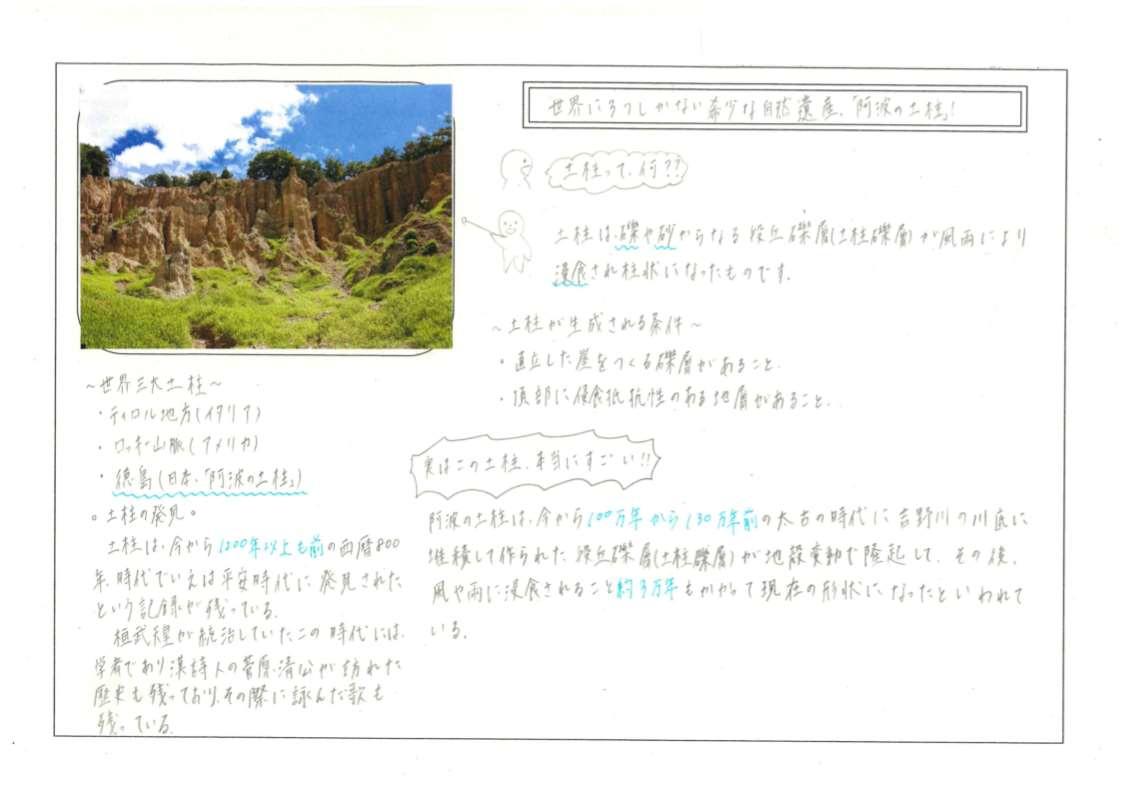 世界に3つしかない希少な自然遺産、「阿波の土柱」!
土柱って、何??
土柱は、礫や砂からなる段丘礫層(土柱礫層)が風雨により
浸食され柱状になったものです。
～土柱が生成される条件～
・直立した崖をつくる礫層があること。
・頂部に侵食抵抗性のある地層があること。
～世界三大土柱～
・ティロル地方(イタリア)
・ロッキー山脈(アメリカ)
・徳島(日本、「阿波の土柱」)
。土柱の発見。
土柱は、今から1200年以上も前の西暦800
年、時代でいえば平安時代に発見された
という記録が残っている。
桓武天皇が統治していたこの時代には、
学者であり漢詩人の菅原清公が訪れた
歴史も残っており、その際に詠んだ歌も
残っている。
実はこの土柱、本当にすごい!!
阿波の土柱は、今から100万年から130万年前の太古の時代に吉野川の川底に
堆積して作られた段丘礫層(土柱礫層)が地殻変動で隆起して、その後、
風や雨に浸食されること約3万年もかかって現在の形状になったといわれて
いる。